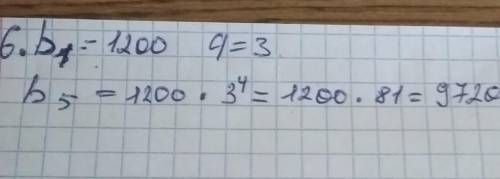 6. b₁ = 1200 q = 3
b₅ = 1200 · 3⁴ = 1200 · 81 = 9720